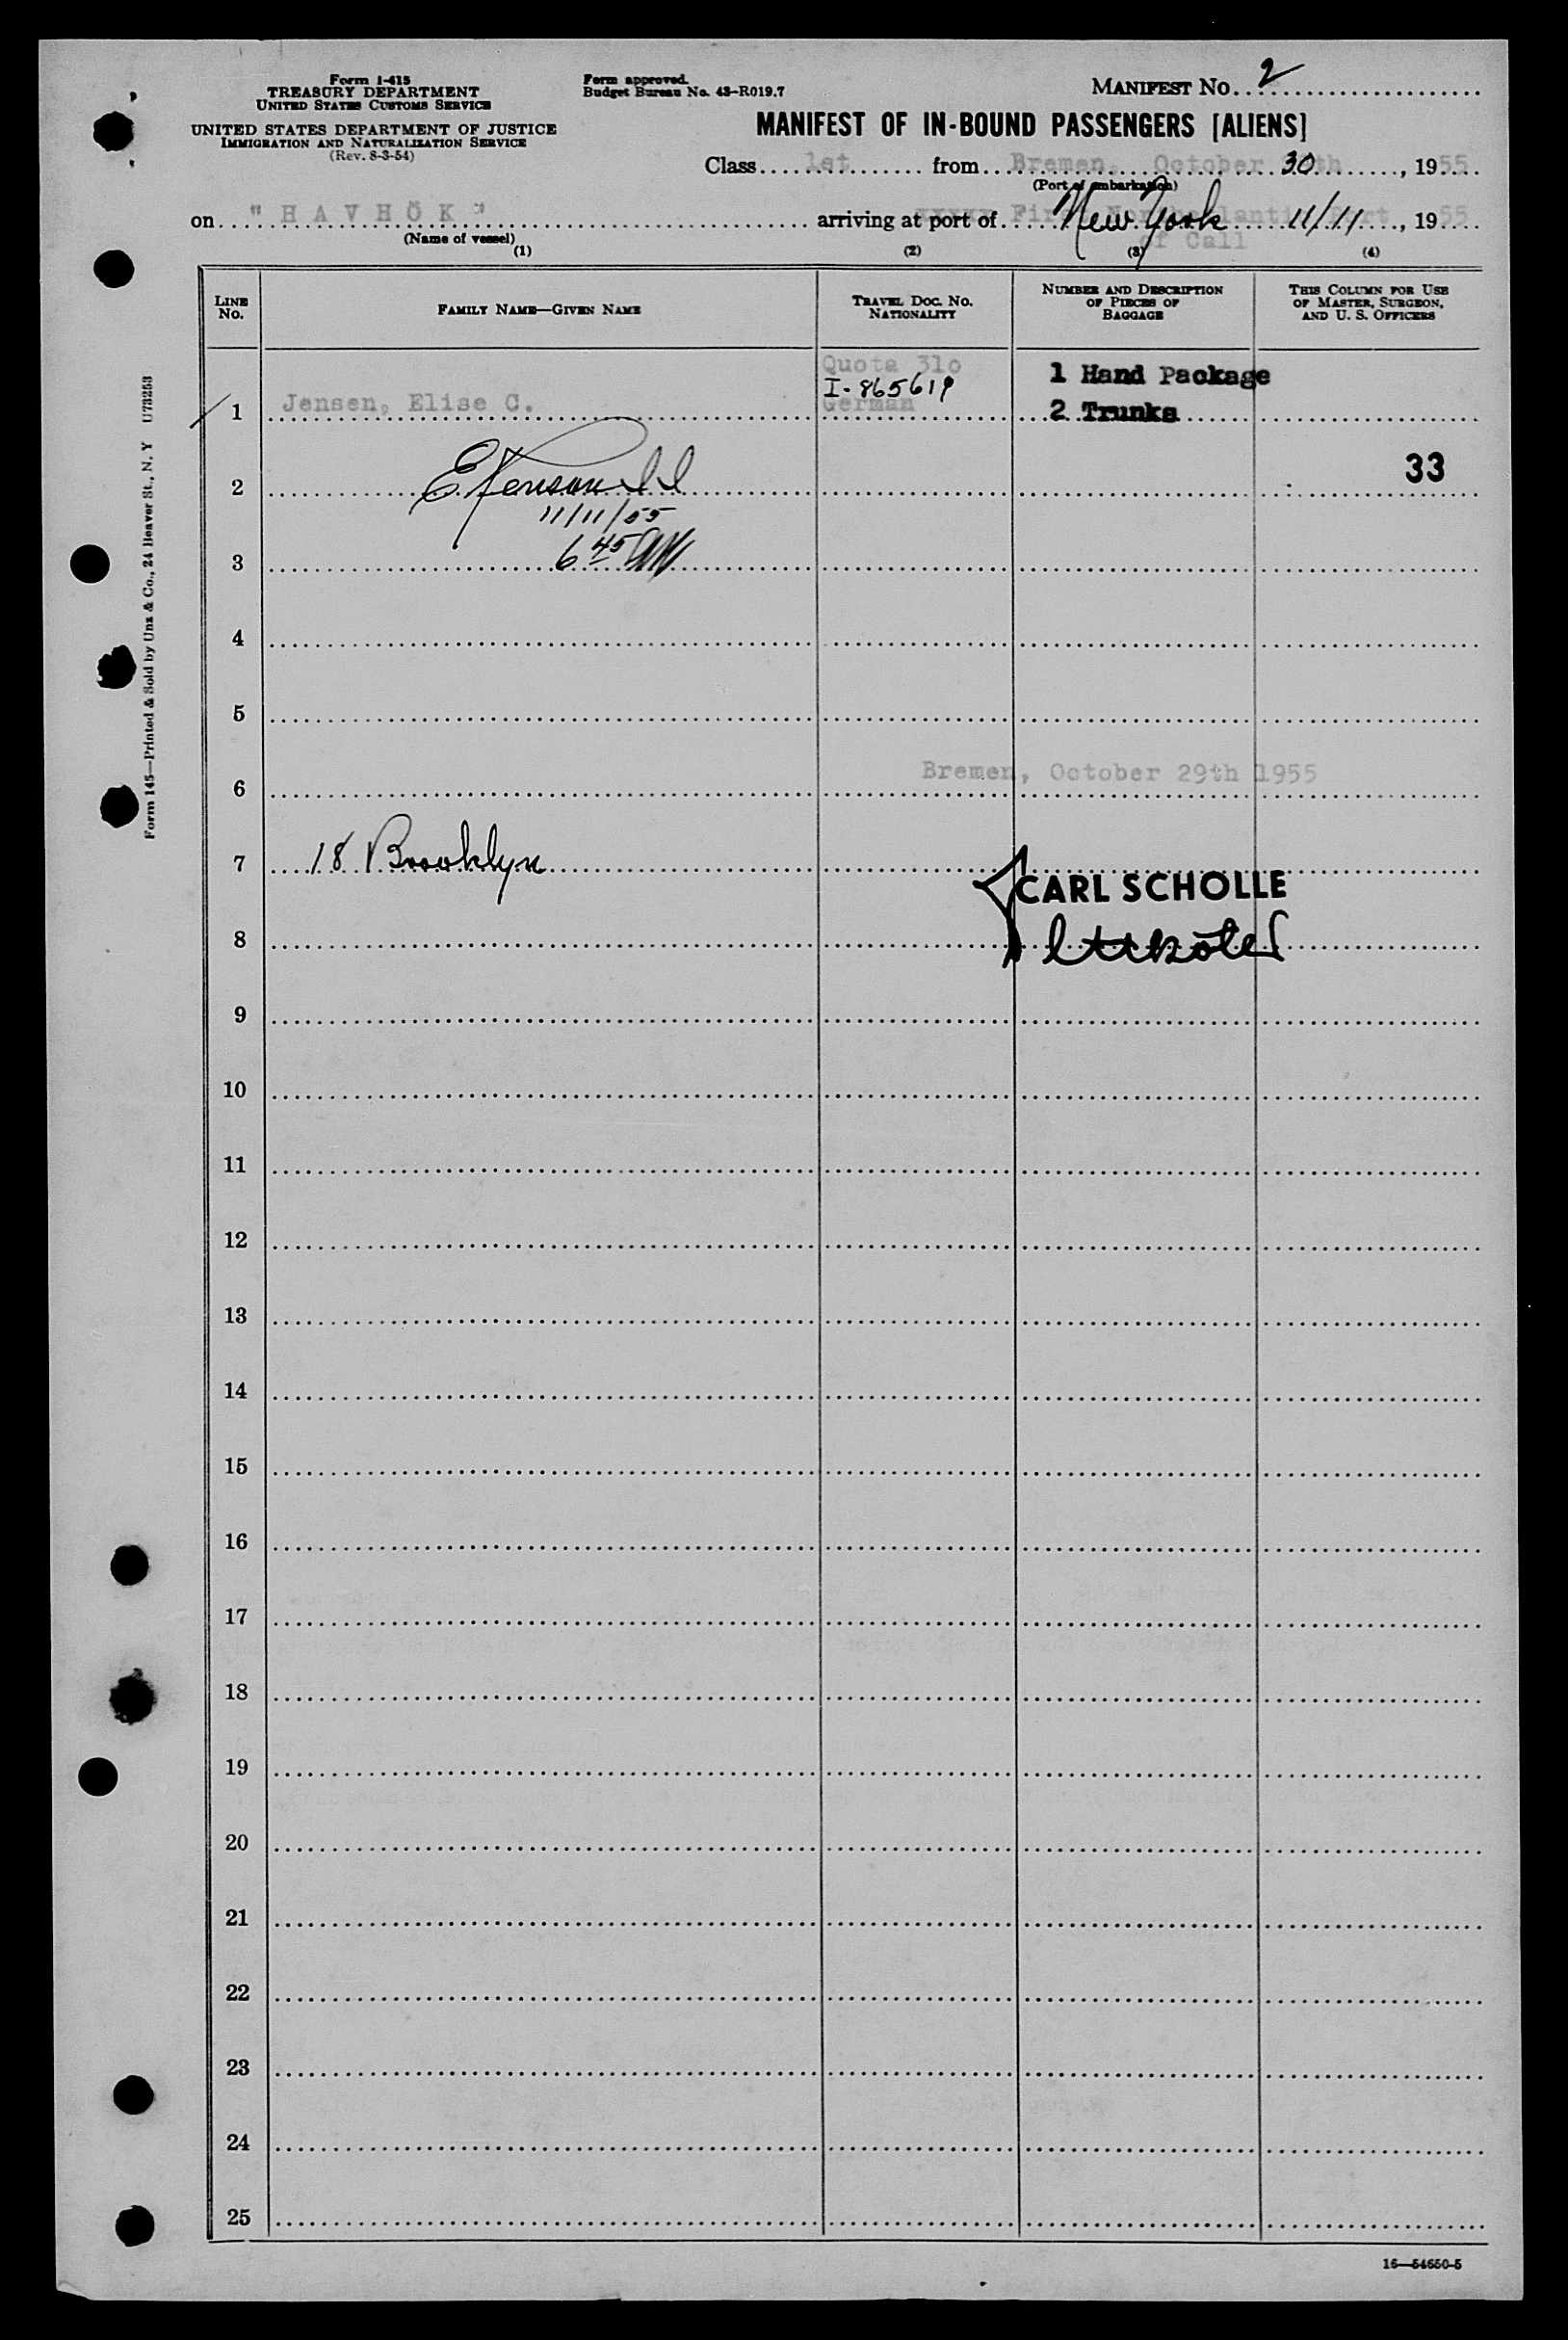 Form I-415
TREASURY DEPARTMENT
UNITED STATES CUSTOMS SERVICE
UNITED STATES DEPARTMENT OF JUSTICE
IMMIGRATION AND NATURALIZATION SERVICE
(Rev. 8-3-54)
Form approved.
Budget Bureau No. 43-R019.7
MANIFEST No. 2
MANIFEST OF IN-BOUND PASSENGERS [ALIENS]
Class 1st from Bremen, October 30th, 1955
(Port of embarkation)
on "HAVHÖK" arriving at port of New York 11/11, 1955
of Call
(Name of vessel)
(1) (2) (3) (4)
LINE No. FAMILY NAME—GIVEN NAME TRAVEL DOC. No. NATIONALITY NUMBER AND DESCRIPTION OF PIECES OF BAGGAGE THIS COLUMN FOR USE OF MASTER, SURGEON, AND U. S. OFFICERS
Quota 31o
I-865619 1 Hand Package
1 Jensen, Elise C. German 2 Trunks
33
2
11/11/55
3 6 45
4
5
Bremen, October 29th 1955
6
7 18 Brooklyn
CARL SCHOLLE
8
9
10
11
12
13
14
15
16
17
18
19
20
21
22
23
24
25
16—54650-5
Form 145—Printed & Sold by Unz & Co., 24 Beaver St., N. Y U73253